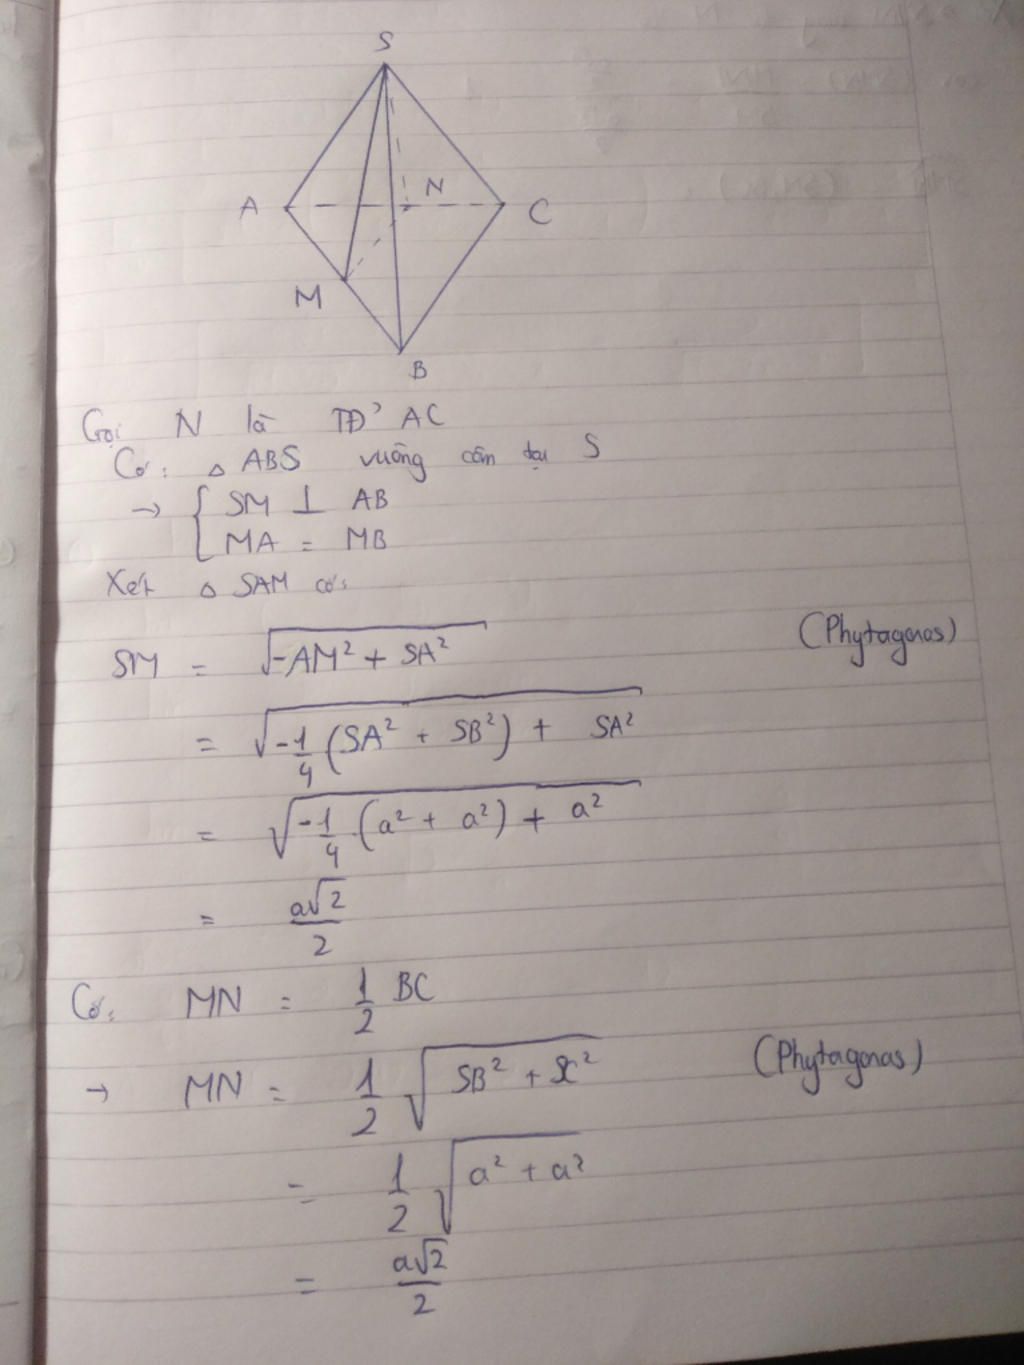 S
A
N
C
M
B
Gọi N là TĐ' AC
Có: △ ABS vuông cân tại S
→ { SM ⊥ AB
MA = MB
Xét △ SAM có:
SM = √(-AM² + SA²) (Phytagoras)
= √(-1/4 (SA² + SB²) + SA²)
= √(-1/4 (a² + a²) + a²)
= a√2/2
Có: MN = 1/2 BC
→ MN = 1/2 √(SB² + SC²) (Phytagoras)
= 1/2 √(a² + a²)
= a√2/2